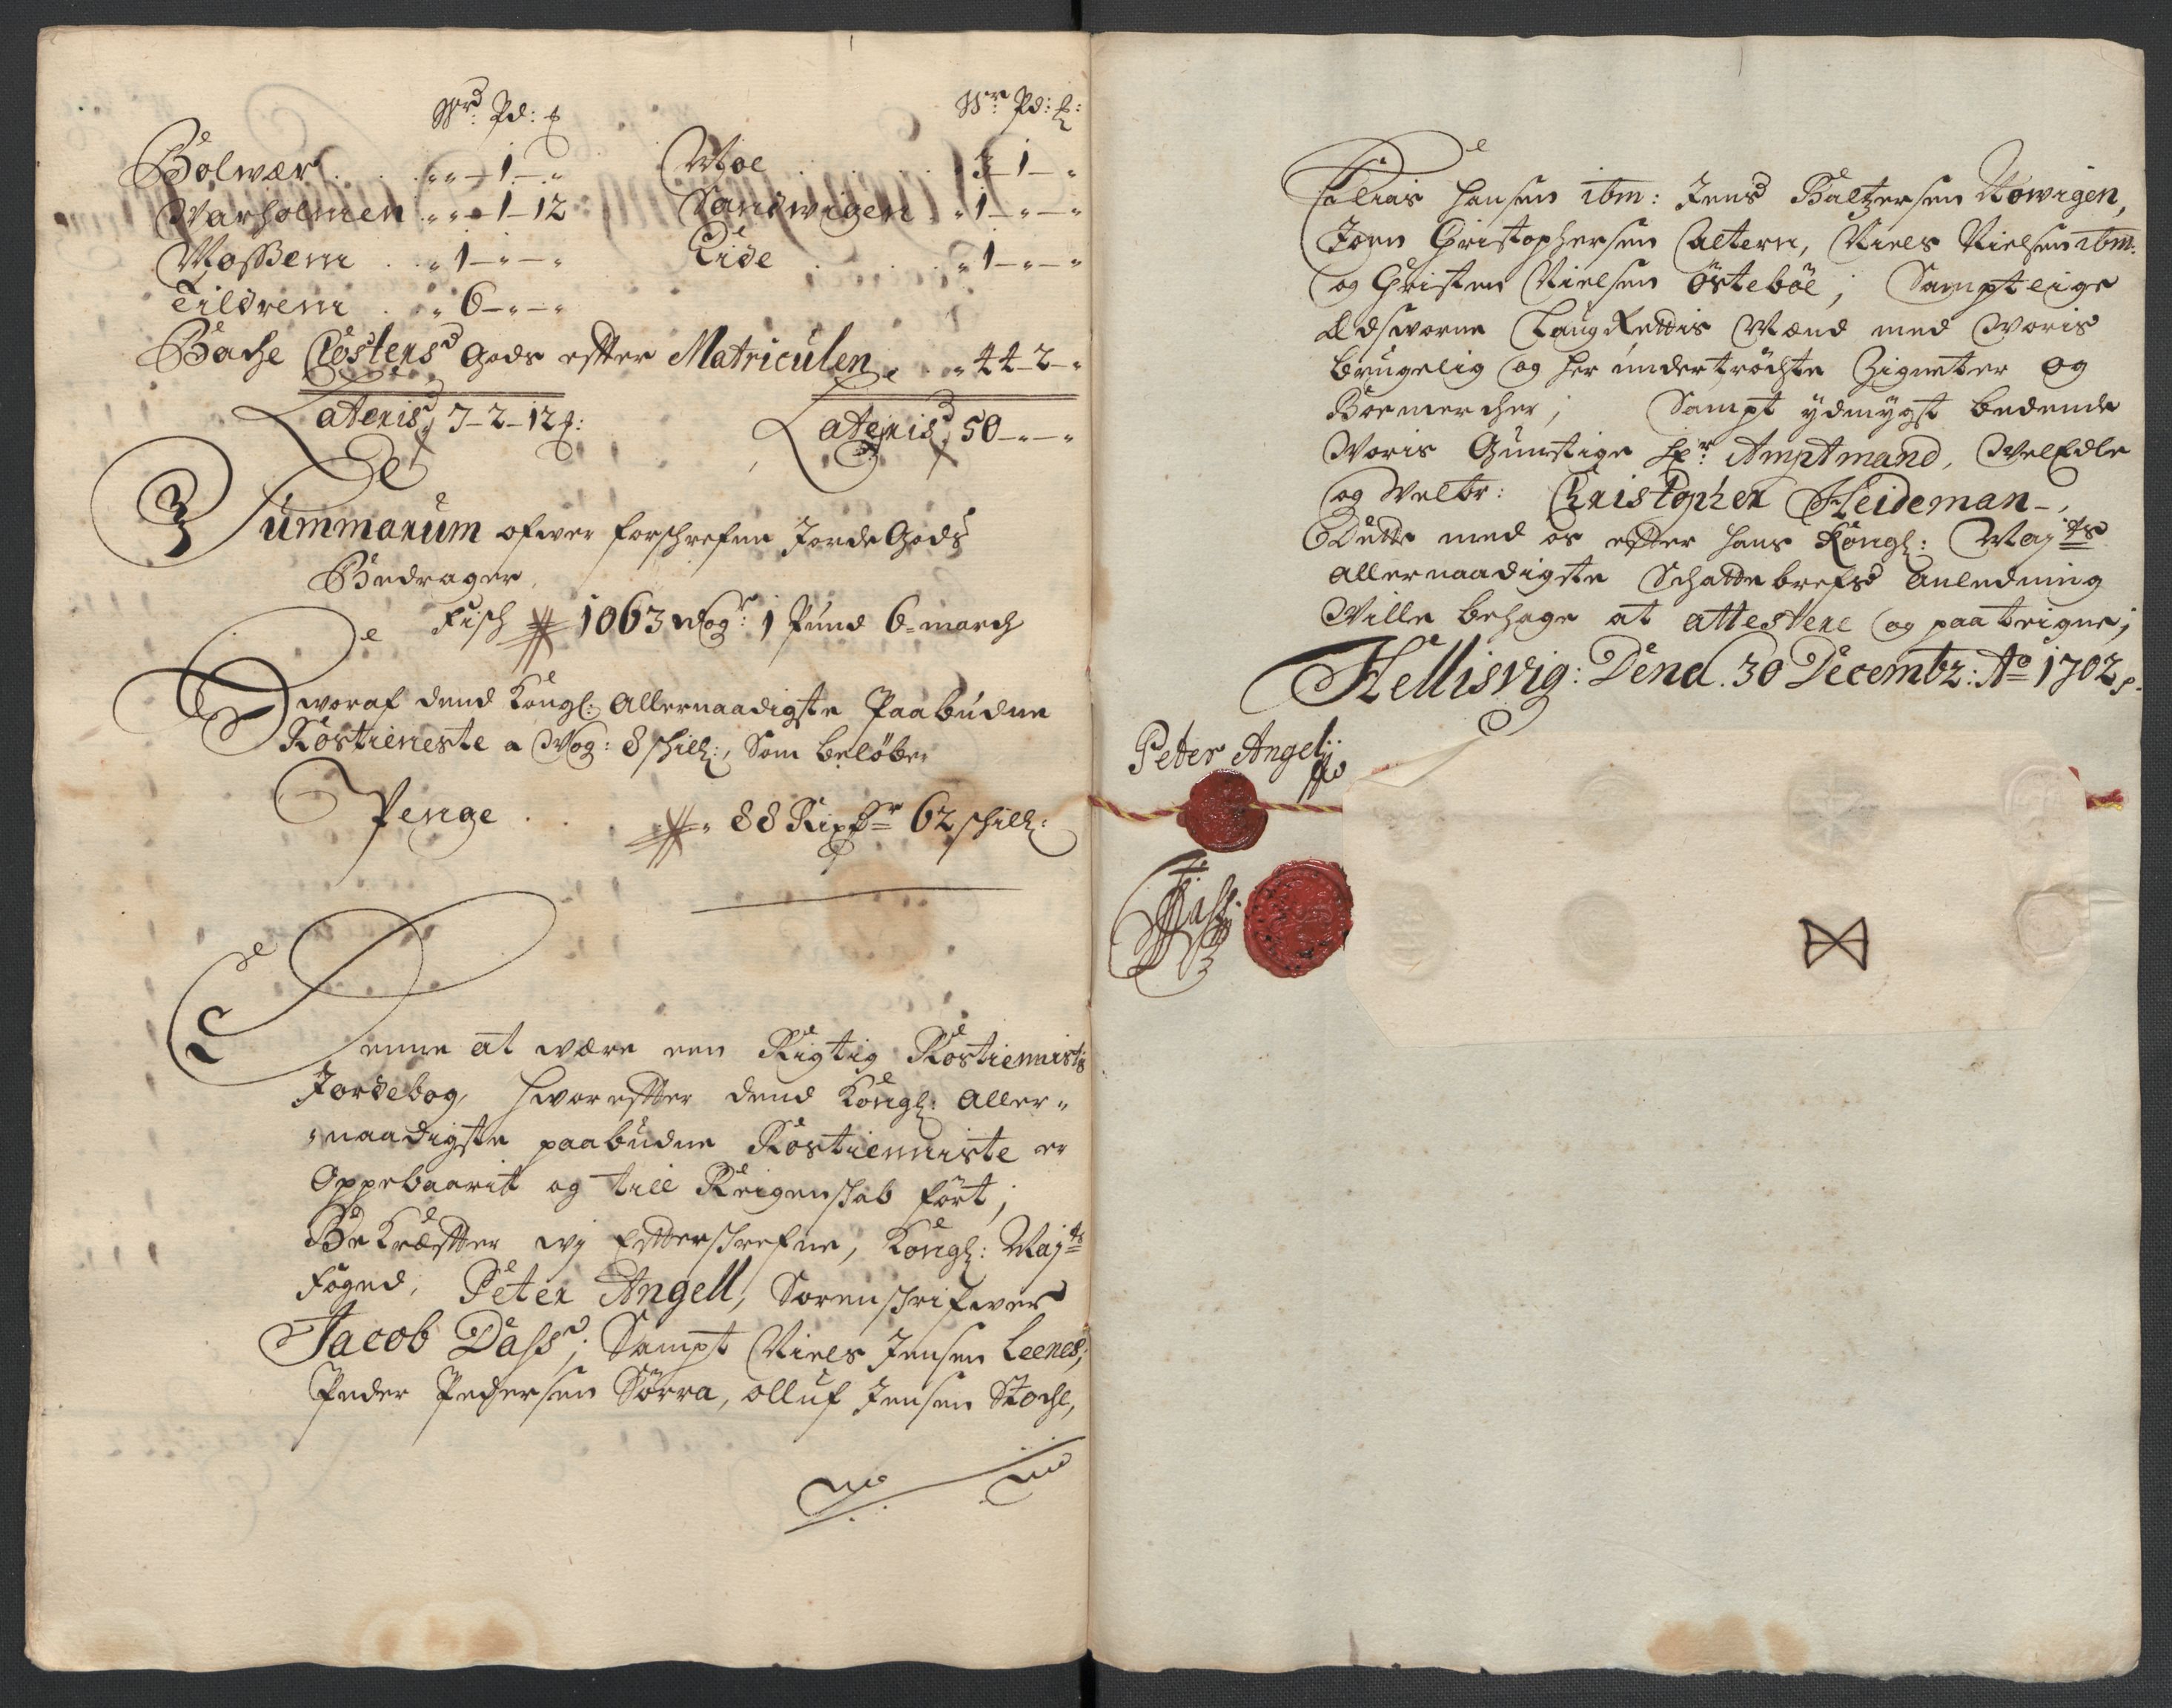 Wr Pd: ℔ Wr Pd: ℔:
Bolwær . . „ „ – 1 – „ Moe . . . „ 3 – 1 – „
Warholmen . „ „ – 1 – 12 Sandwigen . „ 1 – „ – „
Mossem . „ 1 – „ – „ Eide . . . „ 1 – „ – „
Tildrem . „ 6 – „ – „
Bache Closters Gods effter Matriculen . „ 44 – 2 – „
Lateris, 7 – 2 – 12 ℔: Lateris, 50 – „ – „
Summarum ofwer forschrefne Jorde Gods
Bedrager,
Fisch 1063 Wog: 1 Pund 6 march
Hworaf dend Kongl: Allernaadigste Paabudne
Rostieneste a Wog: 8 schill:, Som beløber
Penge . . . 88 Rixdr 62 schill:
Denne at være een Rigtig Rostienniste
Jordebog, hworeffter dend Kongl: Aller-
naadigste paabudne Rostienniste er
Oppebaarit og till Reigenskab ført;
Bekræffter wj Effterschrefne, Kongl: Mayts
Foged, Peter Angell, Sorenschrifwer
Jacob Dass; Sampt Niels Jensen Leenes,
Peder Pedersen Sørra, olluf Jensen Stoche,
Elias Hansen ibm: Jens Baltzersen Nowigen,
Joen Christophersen Altern, Niels Nielsen ibm:
og Christen Nielsen östeböe; Samptlige
Edsworne LaugRettis Mænd med Woris
brugelig og her undertröchte Zigneter og
Boemercher; Sampt ydmygst bedende
Woris Gunstige Hr: Amptmand, WelEdle
og Welbr: Christopher Heideman,
Dette med os effter Hans Kongl: Mayts
Allernaadigste Schattebrefs Anledning
Wille behage at attestere og paateigne;
Hellisvig: Dend. 30 Decembr: Ao 1702
Peter Angell
JDass